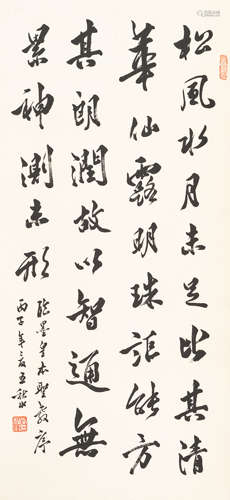 松風水月未足比其清
華仙露明珠詎能方
其朗潤故以智通無
累神測未形
臨墨皇本聖教序
丙子年